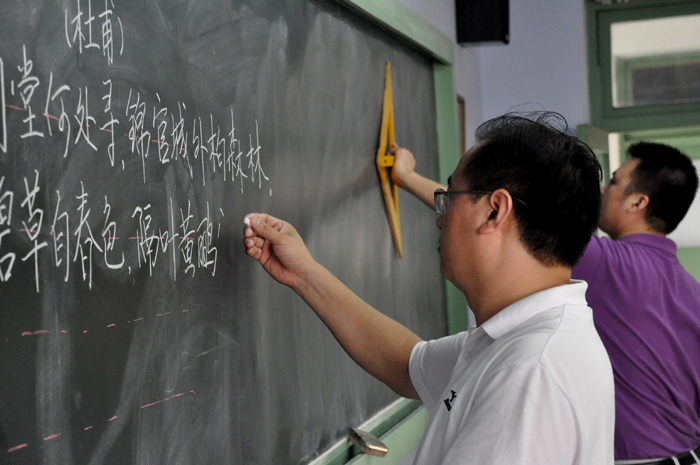 (杜甫)
堂何处寻,锦官城外柏森林,
碧草自春色,隔叶黄鹂